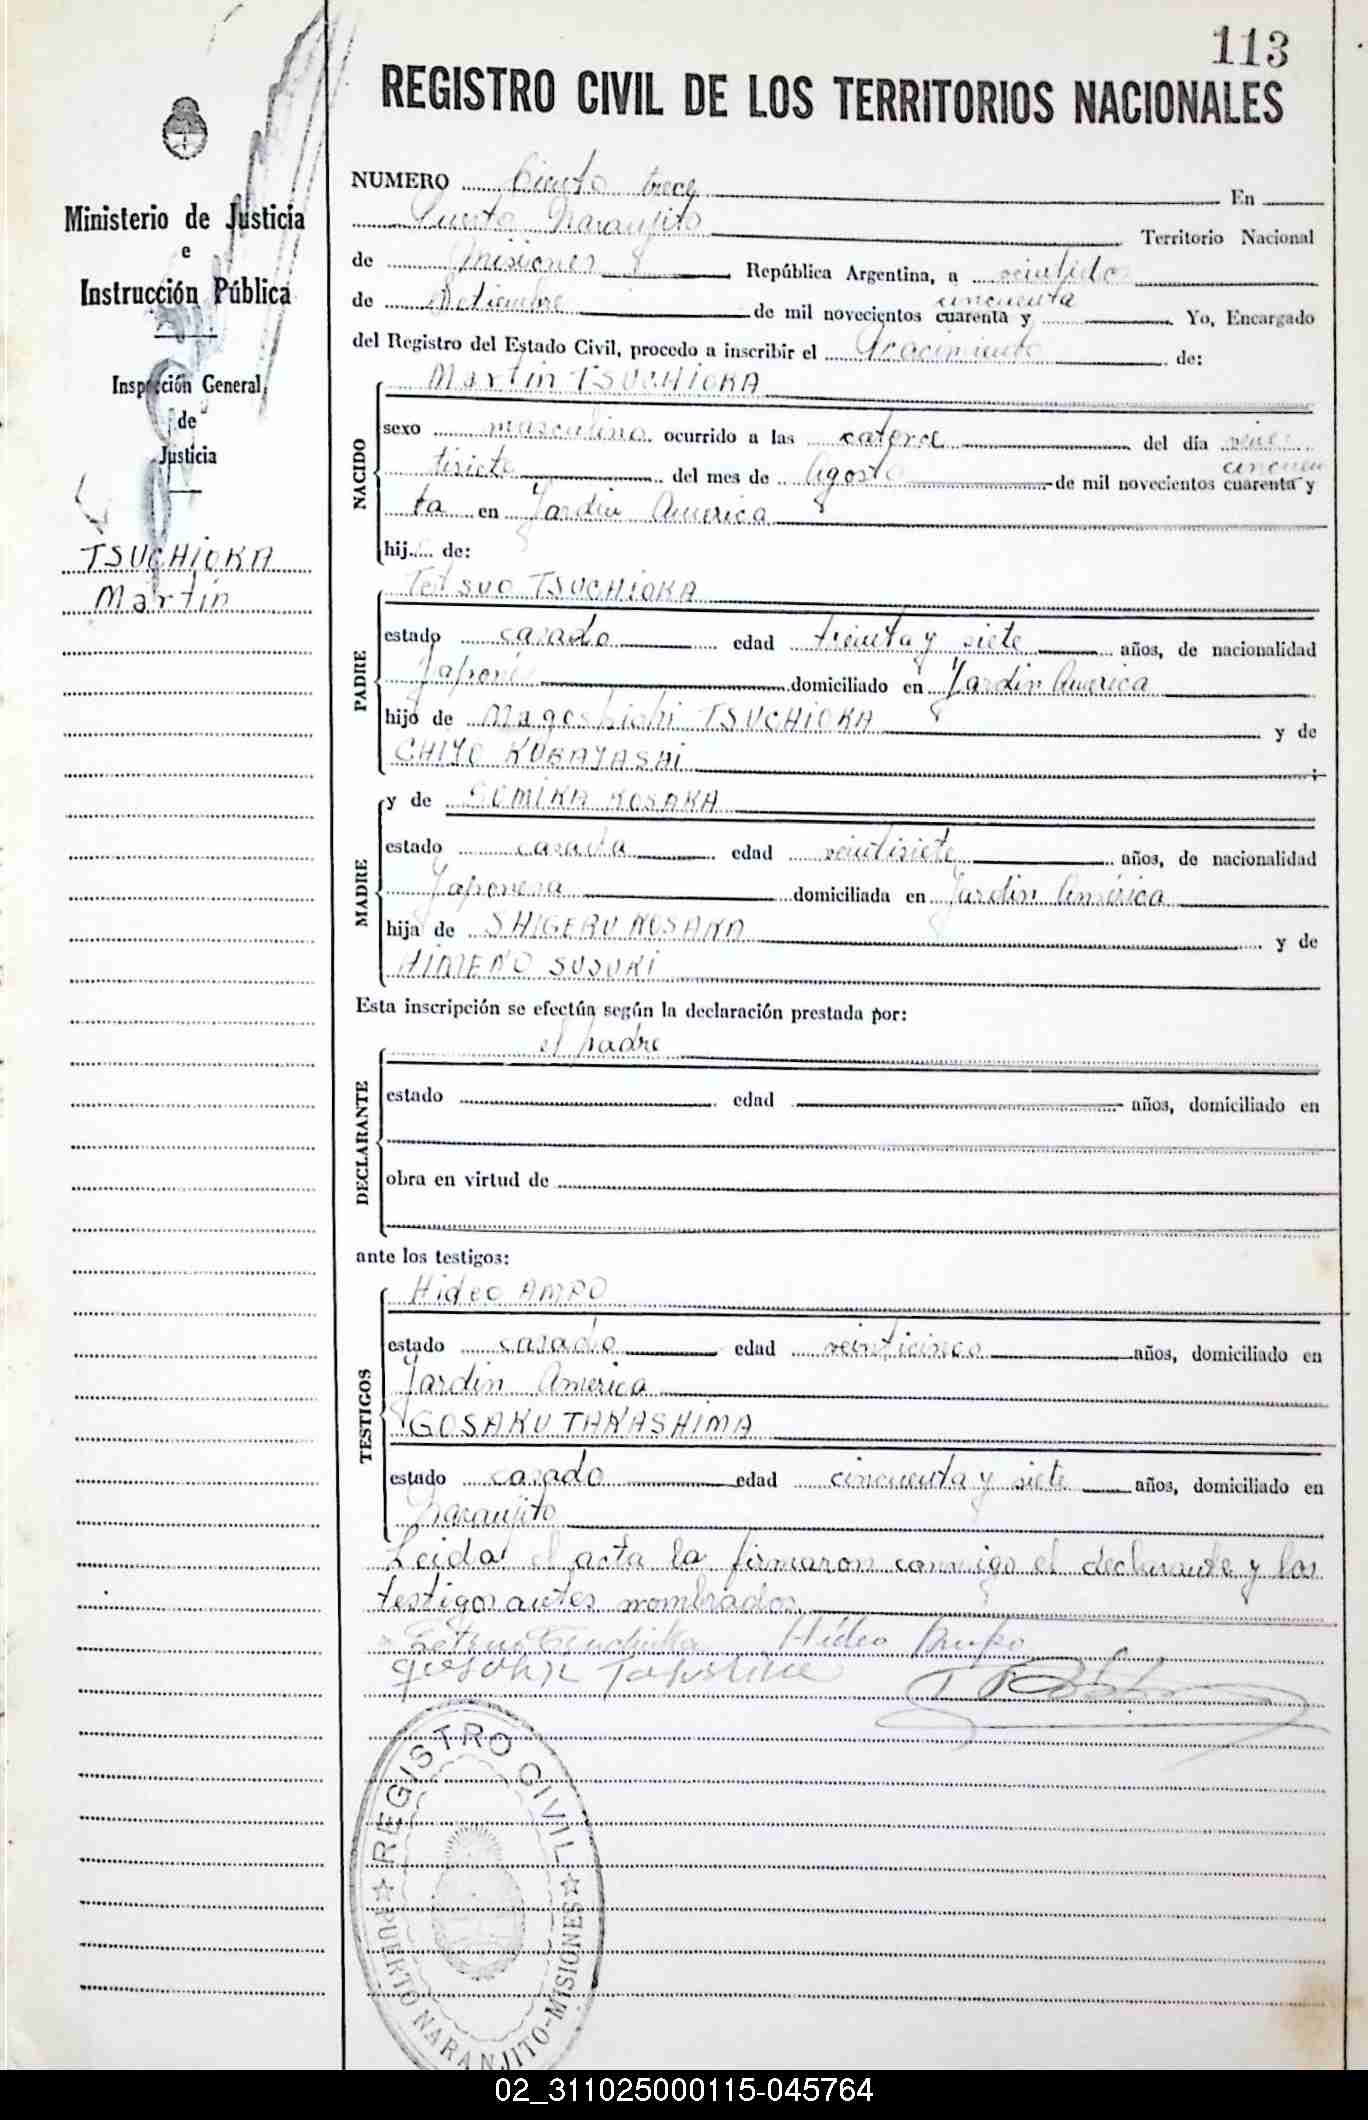 113
REGISTRO CIVIL DE LOS TERRITORIOS NACIONALES
Ministerio de Justicia
e
Instrucción Pública
Inspección General
de
Justicia
TSUCHIOKA
Martín
NUMERO Ciento trece En
Puerto Naranjito Territorio Nacional
de Misiones República Argentina, a veintidos
de Setiembre de mil novecientos cuarenta y cincuenta Yo, Encargado
del Registro del Estado Civil, procedo a inscribir el nacimiento de:
NACIDO
Martin TSUCHIOKA
sexo masculino ocurrido a las catorce del día vein
tisiete del mes de Agosto de mil novecientos cuarenta y cincuen
ta en Jardin America
hij... de:
PADRE
Tetsuo TSUCHIOKA
estado casado edad treinta y siete años, de nacionalidad
Japonés domiciliado en Jardin America
hijo de Magoshichi TSUCHIOKA y de
CHIYO KOBAYASHI ;
MADRE
y de SUMIKA KOSAKA
estado casada edad veintisiete años, de nacionalidad
Japonesa domiciliada en Jardin América
hija de SHIGERU KOSAKA y de
HIMENO SUSUKI
Esta inscripción se efectúa según la declaración prestada por:
DECLARANTE
el padre
estado edad años, domiciliado en
obra en virtud de
ante los testigos:
TESTIGOS
Hideo AMPO
estado casado edad veinticinco años, domiciliado en
Jardin America
GOSAKU TAKASHIMA
estado casado edad cincuenta y siete años, domiciliado en
Naranjito
Leida el acta la firmaron conmigo el declarante y los
testigos antes nombrados.
Hideo Ampo
REGISTRO CIVIL
PUERTO NARANJITO-MISIONES
02_311025000115-045764